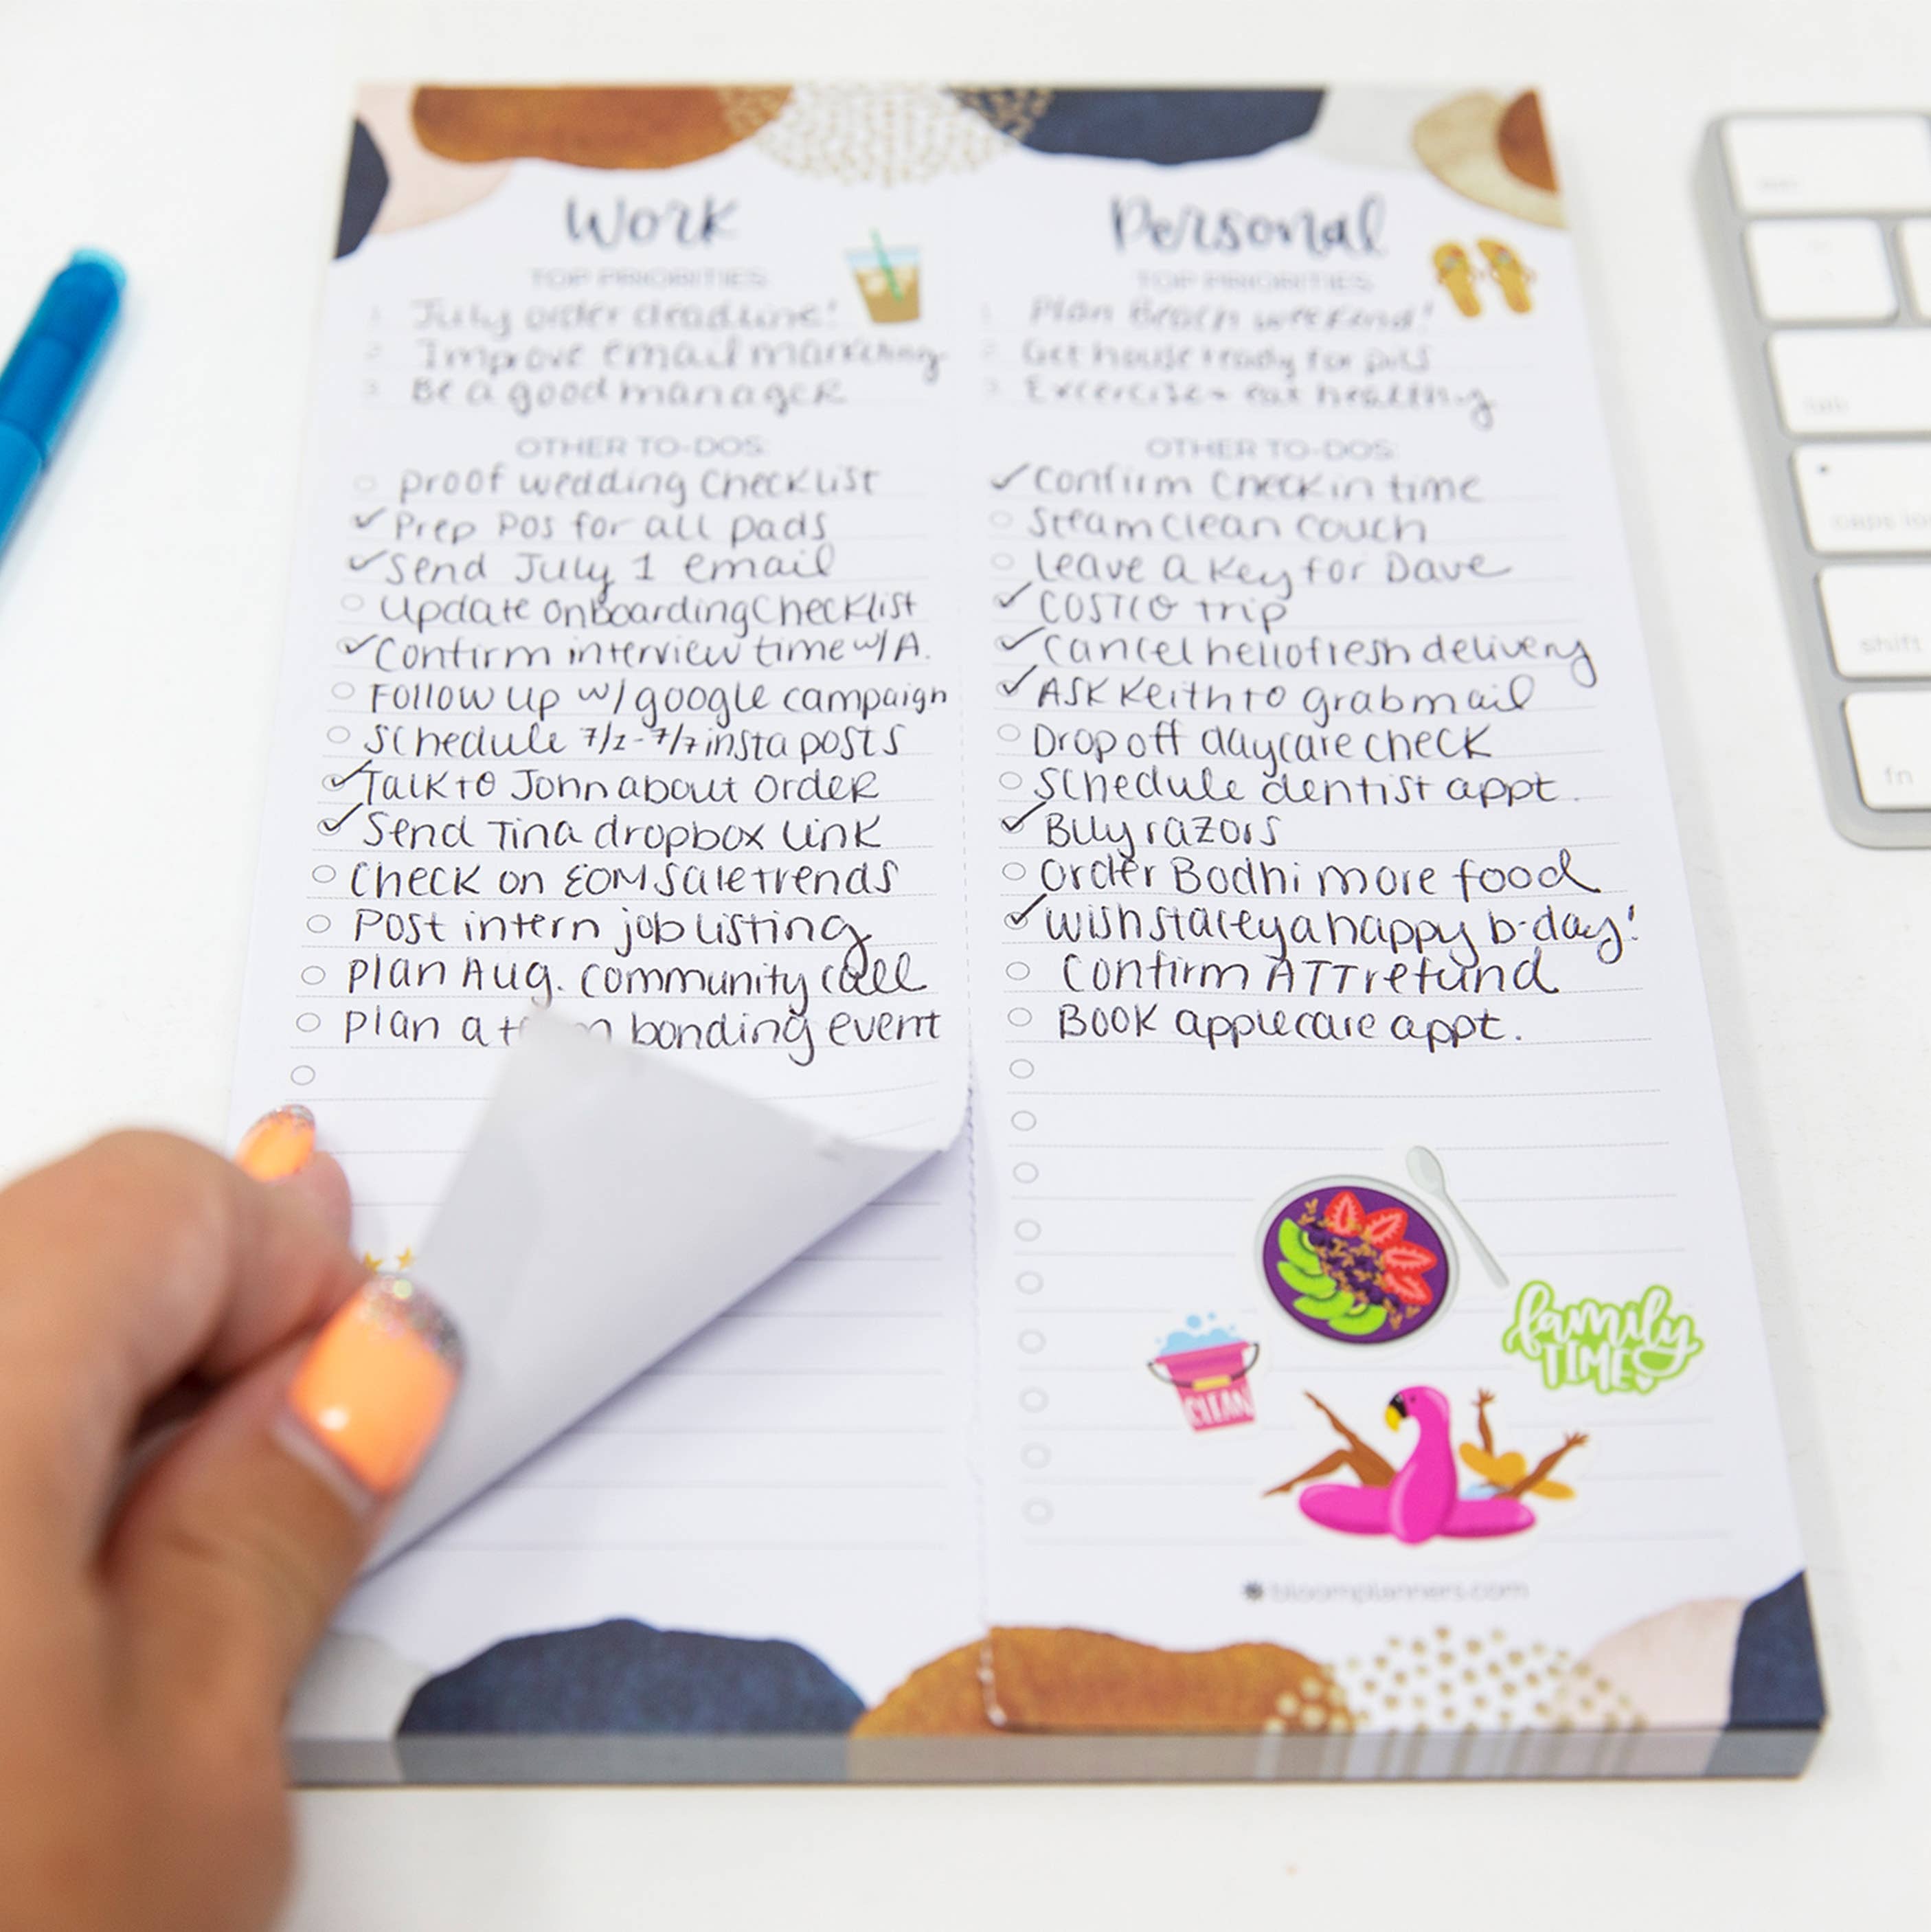 Work
TOP PRIORITIES:
1. July order deadline!
2. Improve email marketing
3. Be a good manager
OTHER TO-DOS:
Proof wedding Checklist
✓ Prep POs for all pads
✓ Send July 1 email
Update Onboarding Checklist
✓ Confirm interview time w/ A.
Follow up w/ google campaign
Schedule 7/1-7/7 insta posts
✓ Talk to John about Order
✓ Send Tina dropbox link
Check on EOM Sale trends
Post intern job listing
Plan Aug. Community Call
Plan a bonding event
Personal
TOP PRIORITIES:
1. Plan Beach weekend!
2. Get house ready for
3. Excercise + eat healthy
OTHER TO-DOS:
✓ Confirm Check in time
Steam Clean Couch
Leave a Key for Dave
✓ COSTCO trip
✓ Cancel hellofresh delivery
✓ ASK Keith to grab mail
Drop off daycare check
Schedule dentist appt.
✓ Buy razors
Order Bodhi more food
✓ Wish stacey a happy b-day!
Confirm ATT refund
Book applecare appt.
CLEAN
family
TIME
bloomplanners.com
tab
caps lo
shift
fn